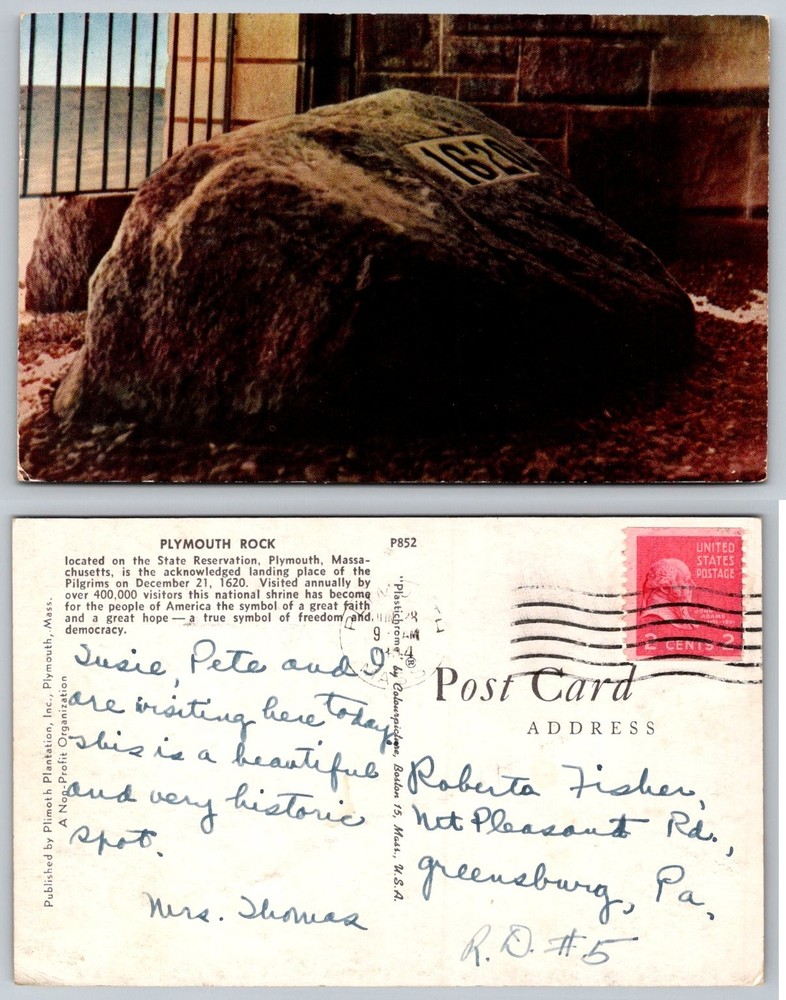 1620
PLYMOUTH ROCK
located on the State Reservation, Plymouth, Massa-
chusetts, is the acknowledged landing place of the
Pilgrims on December 21, 1620. Visited annually by
over 400,000 visitors this national shrine has become
for the people of America the symbol of a great faith
and a great hope — a true symbol of freedom and
democracy.
P852
Published by Plimoth Plantation, Inc., Plymouth, Mass.
A Non-Profit Organization
Susie, Pete and I
are visiting here today.
This is a beautiful
and very historic
spot.
Mrs. Thomas
"Plastichrome"® by Colourpicture, Boston 15, Mass., U.S.A.
9 AM
UNITED
STATES
POSTAGE
ADAMS
2 CENTS 2
Post Card
ADDRESS
Roberta Fisher,
Mt Pleasant Rd.,
Greensburg, Pa,
R.D. #5